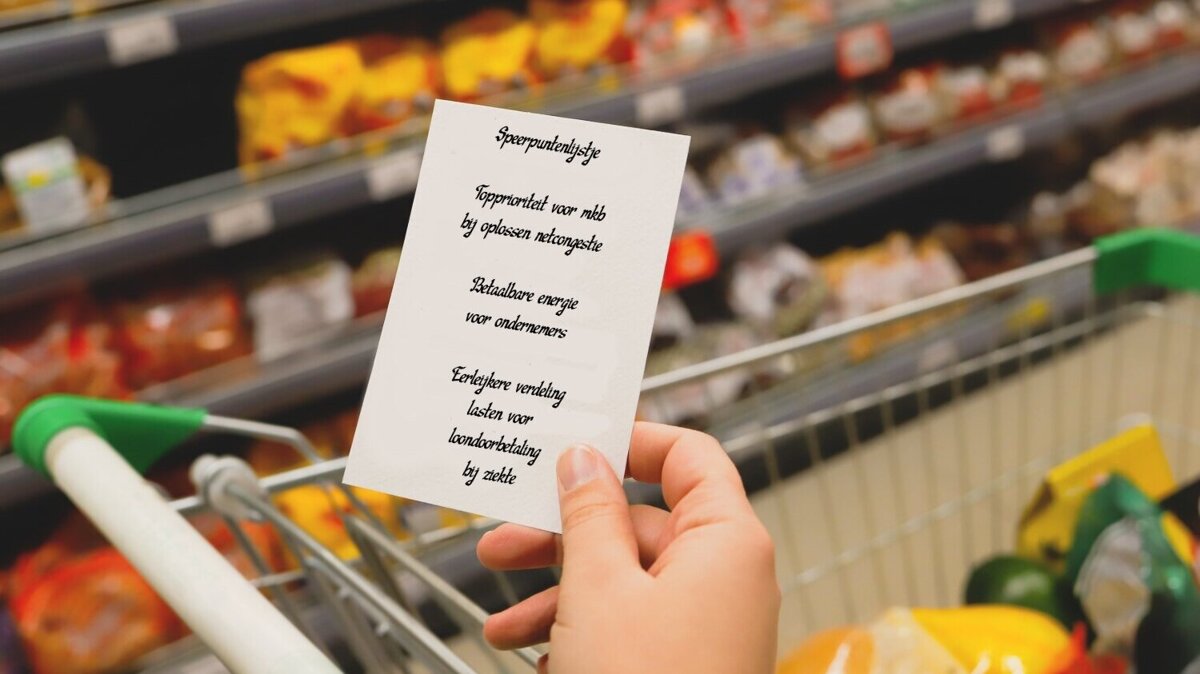 Speerpuntenlijstje
Topprioriteit voor mkb
bij oplossen netcongestie
Betaalbare energie
voor ondernemers
Eerleijkere verdeling
lasten voor
loondoorbetaling
bij ziekte